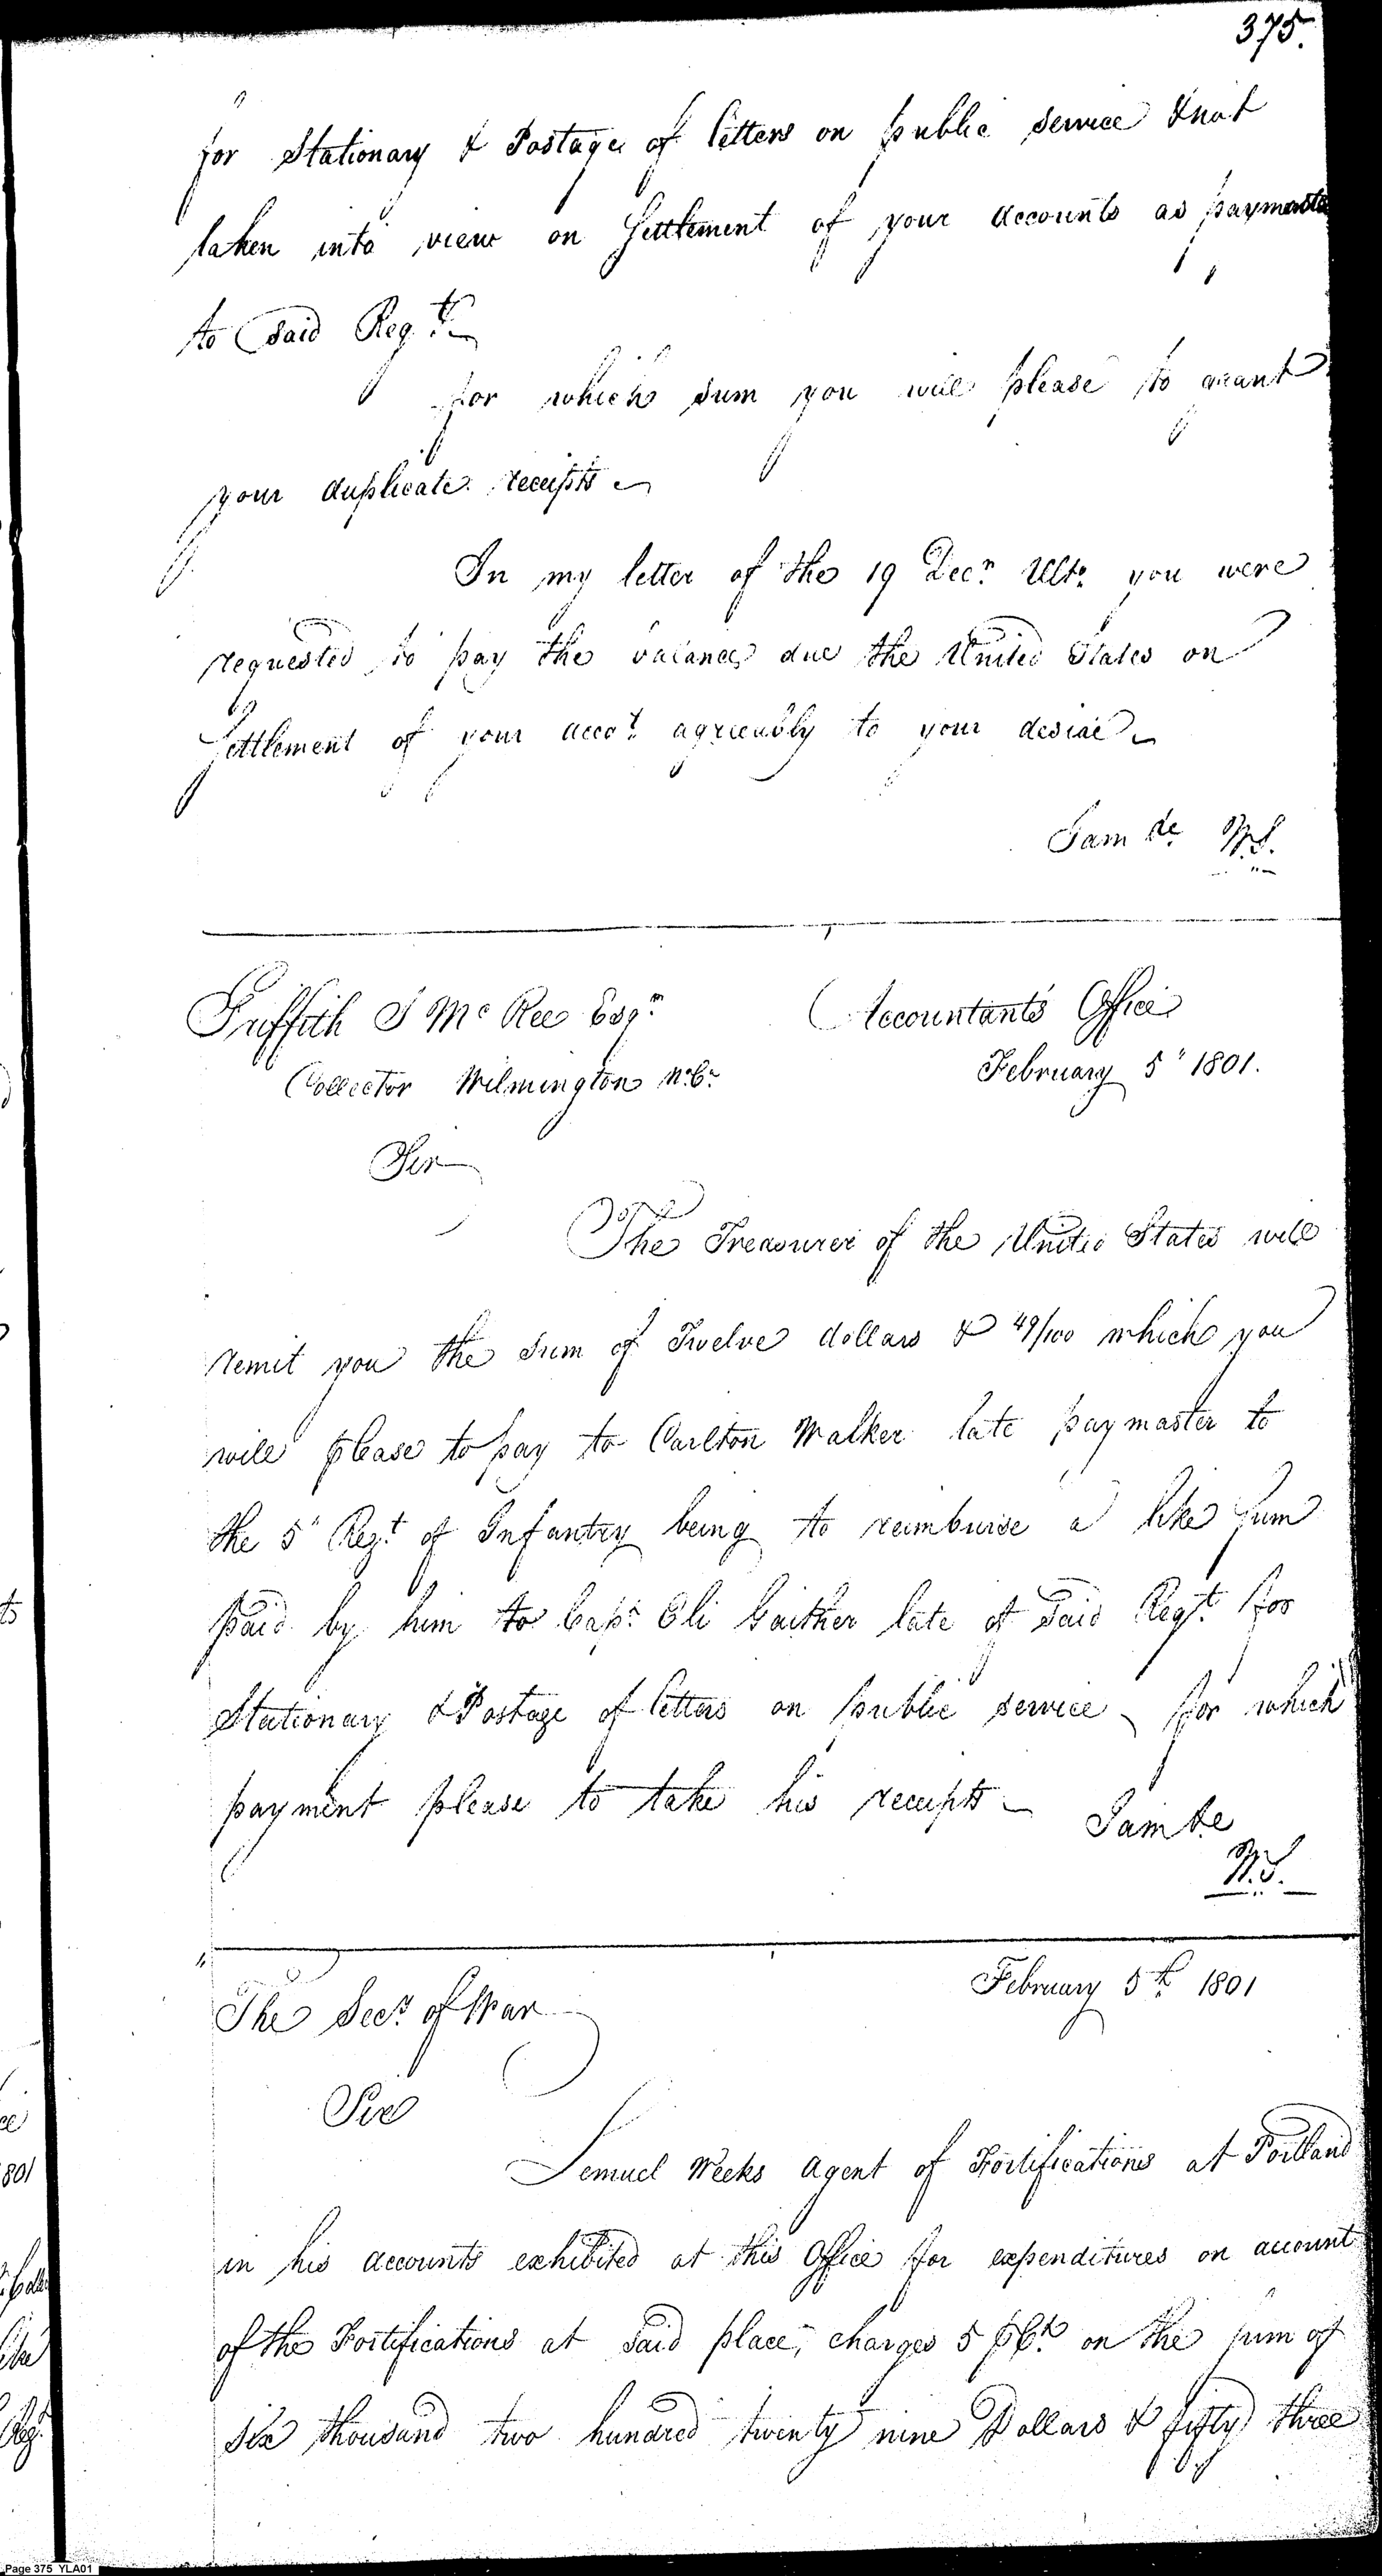 375.
for Stationary & Postage of letters on public service & not
taken into view on Settlement of your accounts as payments
to said Regt.
for which sum you will please to grant
your duplicate receipts
In my letter of the 19 Decr. Ulto. you were
requested to pay the balance due the United States on
Settlement of your accot. agreeably to your desire
I am &c. W.S.
Griffith J McRee Esqr. Accountants Office
Collector Wilmington N.C. February 5" 1801.
Sir
The Treasurer of the United States will
remit you the sum of Twelve dollars & 49/100 which you
will please to pay to Carlton Walker late paymaster to
the 5" Regt. of Infantry being to reimburse a like sum
paid by him to Capt. Eli Gaither late of said Regt. for
Stationary & Postage of letters on public service for which
payment please to take his receipts I am &c
W.S.
The Secy. of War February 5th. 1801
Sir
Lemuel Weeks agent of Fortifications at Portland
in his accounts exhibited at this Office for expenditures on account
of the Fortifications at said place, charges 5 pCt. on the sum of
six thousand two hundred twenty nine Dollars & fifty three
Page 375 YLA01